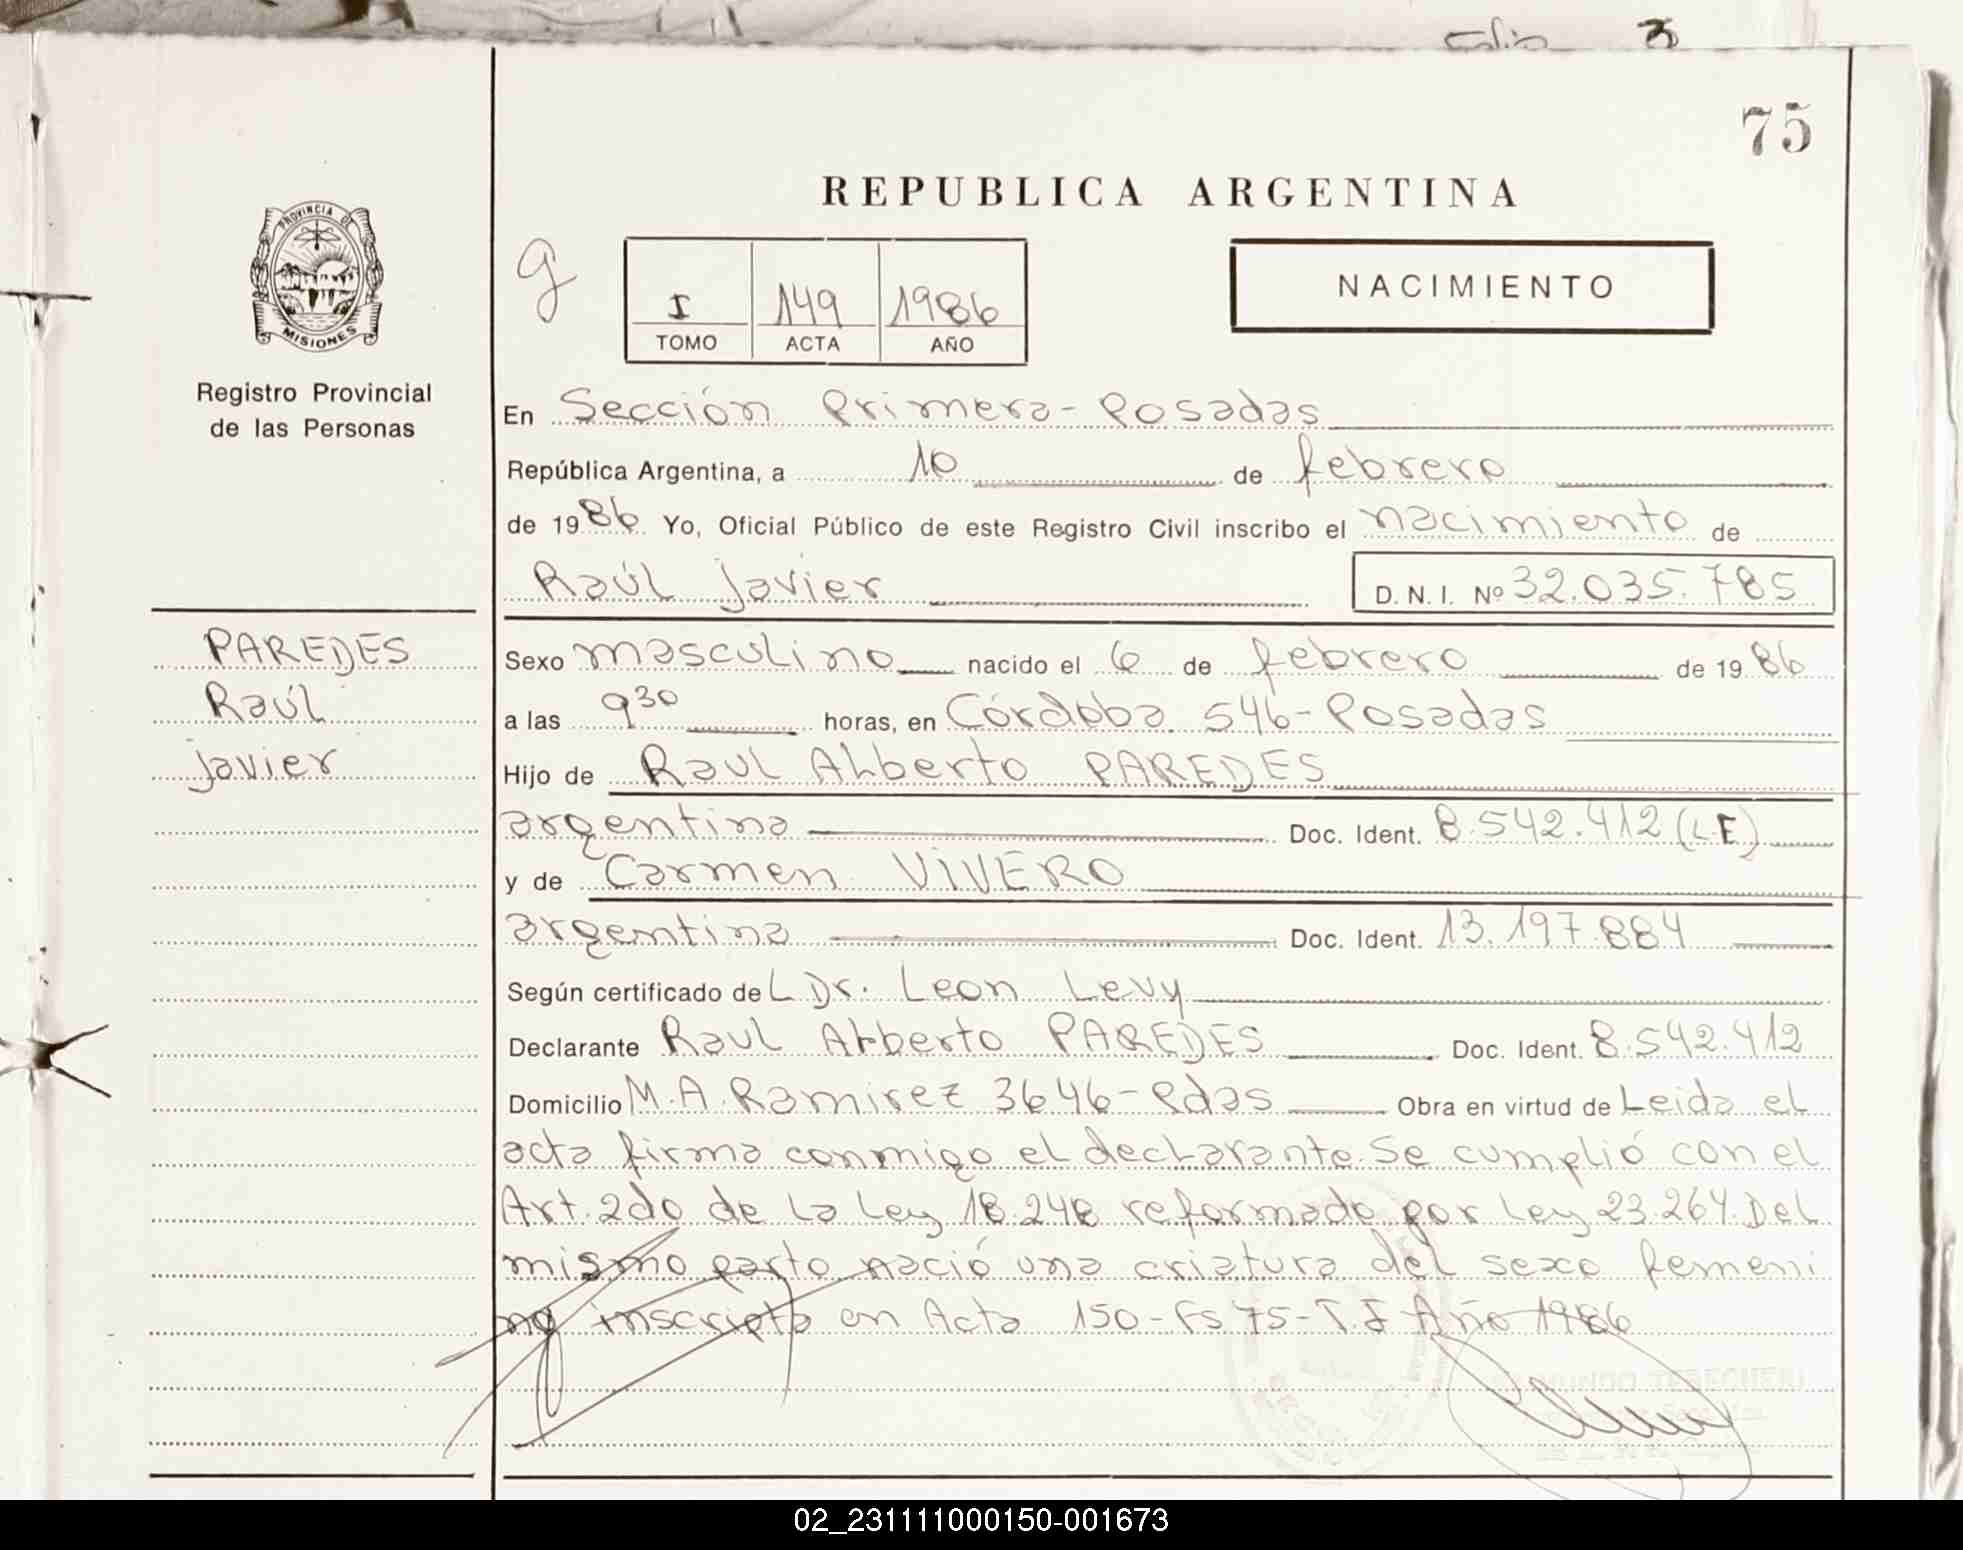 Folio 3
75
REPUBLICA ARGENTINA
PROVINCIA DE
MISIONES
Registro Provincial
de las Personas
g
I 149 1986
TOMO ACTA AÑO
NACIMIENTO
En Sección Primera - Posadas
República Argentina, a 10 de febrero
de 1986 Yo, Oficial Público de este Registro Civil inscribo el nacimiento de
Raúl Javier D. N. I. Nº 32.035.785
PAREDES
Raúl
Javier
Sexo masculino nacido el 6 de febrero de 1986
a las 9 30 horas, en Córdoba 546 - Posadas
Hijo de Raul Alberto PAREDES
argentina Doc. Ident. 8.542.412 (L.E)
y de Carmen VIVERO
argentina Doc. Ident. 13.197.884
Según certificado del Dr. Leon Levy
Declarante Raul Alberto PAREDES Doc. Ident. 8.542.412
Domicilio M.A. Ramirez 3646 - Pdas Obra en virtud de Leida el
acta firma conmigo el declarante. Se cumplió con el
Art. 2do de la Ley 18.248 reformado por Ley 23.264. Del
mismo parto nació una criatura del sexo femeni
no inscripta en Acta 150 - Fs 75 - T. I Año 1986
02_231111000150-001673